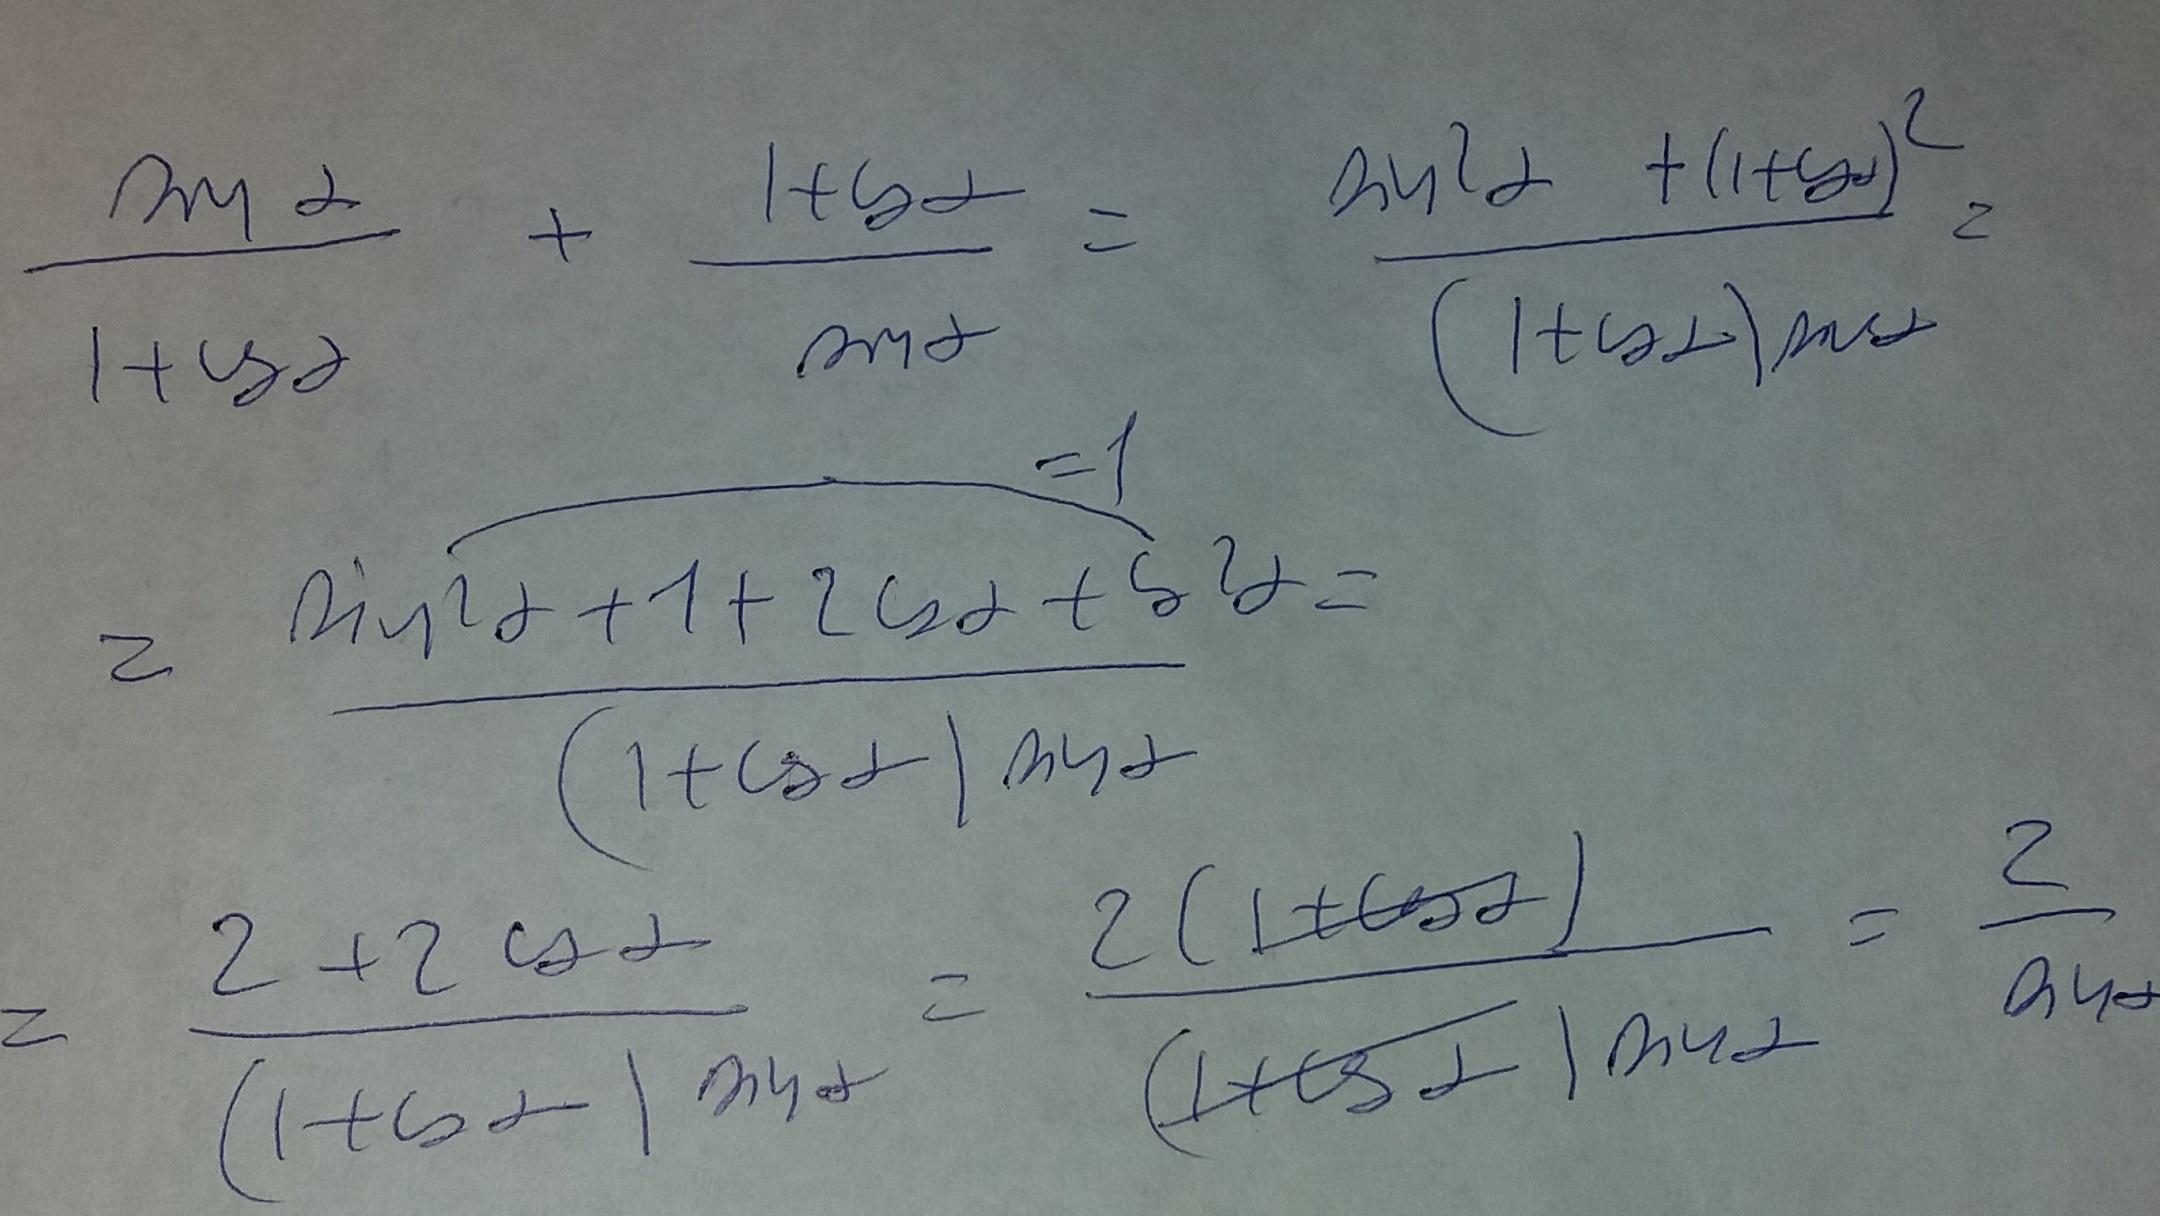 sin α / (1+cos α) + (1+cos α) / sin α = (sin²α + (1+cos α)²) / ((1+cos α) sin α) =
=1
= (sin²α + 1 + 2 cos α + cos²α) / ((1+cos α) sin α) =
= (2 + 2 cos α) / ((1+cos α) sin α) = 2(1+cos α) / ((1+cos α) sin α) = 2 / sin α